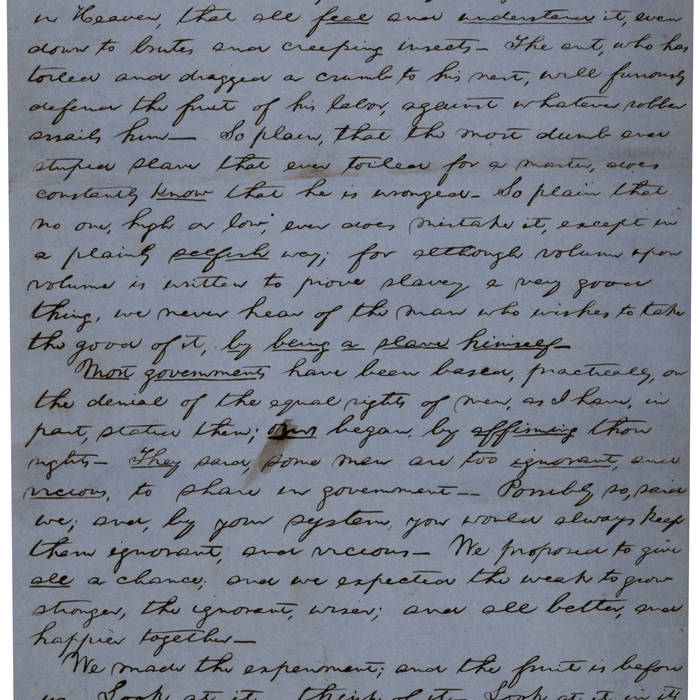 in Heaven, that all feel and understand it, even
down to brutes and creeping insects— The ant, who has
toiled and dragged a crumb to his nest, will furiously
defend the fruit of his labor, against whatever robber
assails him— So plain, that the most dumb and
stupid slave that ever toiled for a master, does
constantly know that he is wronged— So plain that
no one, high or low, ever does mistake it, except in
a plainly selfish way; for although volume upon
volume is written to prove slavery a very good
thing, we never hear of the man who wishes to take
the good of it, by being a slave himself—
Most governments have been based, practically, on
the denial of the equal rights of men, as I have, in
part, stated them; ours began, by affirming those
rights— They said, some men are too ignorant, and
vicious, to share in government— Possibly so, said
we; and, by your system, you would always keep
them ignorant, and vicious— We proposed to give
all a chance; and we expected the weak to grow
stronger, the ignorant, wiser; and all better, and
happier together—
We made the experiment; and the fruit is before
us. Look at it— think of it— Look at it, in it